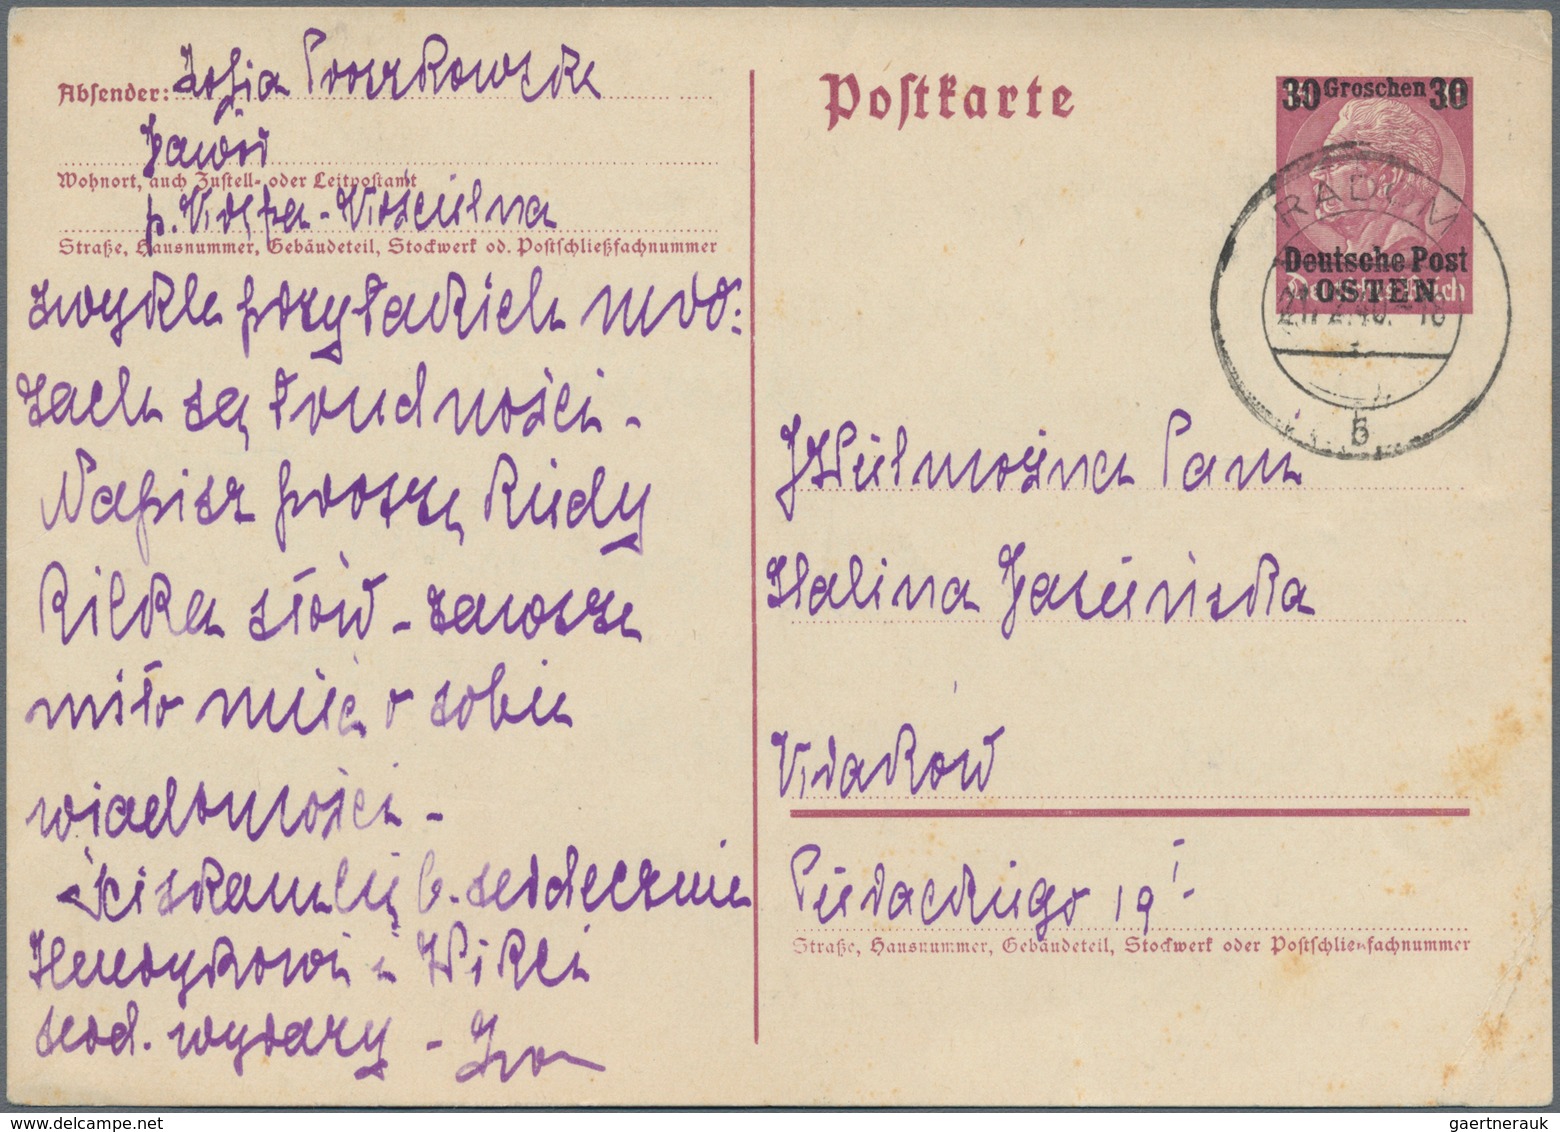 Absender: Zofia Proszkowska
Zawód
Wohnort, auch Zustell- oder Leitpostamt
p. Wola-
Straße, Hausnummer, Gebäudeteil, Stockwerk od. Postschließfachnummer
zwykle przy takich mro:
zach są trudności -
Napisz proszę kiedy
kilka słów - zawsze
miło mieć o sobie
wiadomości -
Ściskam Cię b. serdecznie
Henrykowi i
serd. wyrazy -
Postkarte
30 Groschen 30
Deutsche Post
OSTEN
Deutsches Reich
RADYM
21. 2. 40. 18
b
JWielmożna Pani
Halina Jasieńska
Kraków
Pierackiego 19
Straße, Hausnummer, Gebäudeteil, Stockwerk oder Postschließfachnummer
gaertnerauk